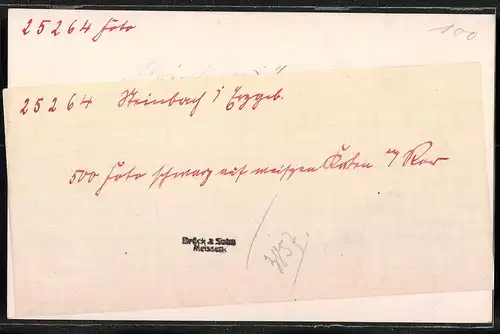 25264 Foto
100
25264 Steinbach i/Erzgeb.
500 Foto schwarz auf weissen Karton m/ Ror
Brück & Sohn
Meissen